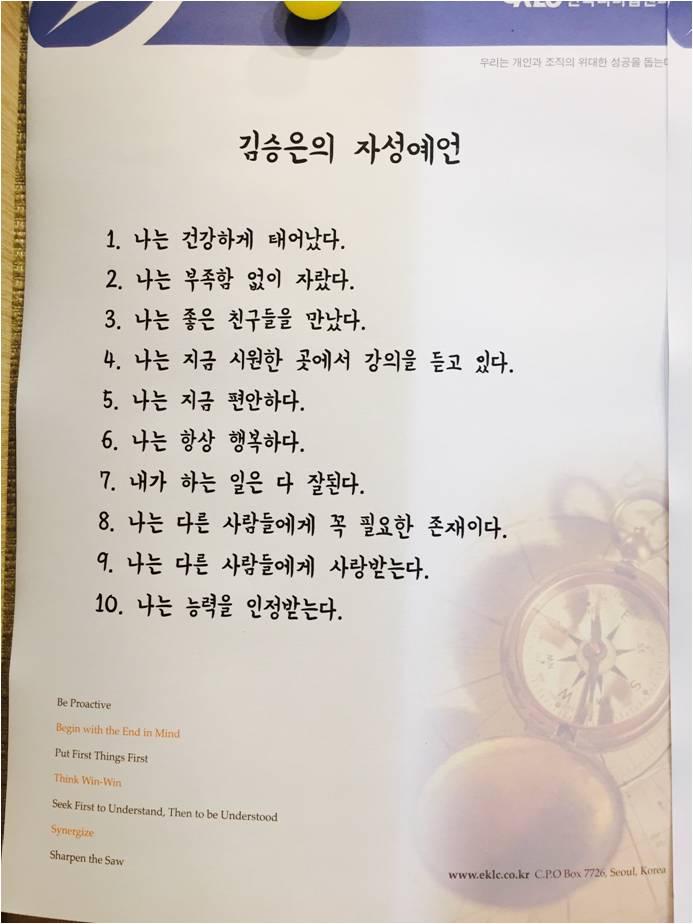 우리는 개인과 조직의 위대한 성공을
김승은의 자성예언
1. 나는 건강하게 태어났다.
2. 나는 부족함 없이 자랐다.
3. 나는 좋은 친구들을 만났다.
4. 나는 지금 시원한 곳에서 강의을 듣고 있다.
5. 나는 지금 편안하다.
6. 나는 항상 행복하다.
7. 내가 하는 일은 다 잘된다.
8. 나는 다른 사람들에게 꼭 필요한 존재이다.
9. 나는 다른 사람들에게 사랑받는다.
10. 나는 능력을 인정받는다.
Be Proactive
Begin with the End in Mind
Put First Things First
Think Win-Win
Seek First to Understand, Then to be Understood
Synergize
Sharpen the Saw
www.eklc.co.kr C.P.O Box 7726, Seoul, Korea